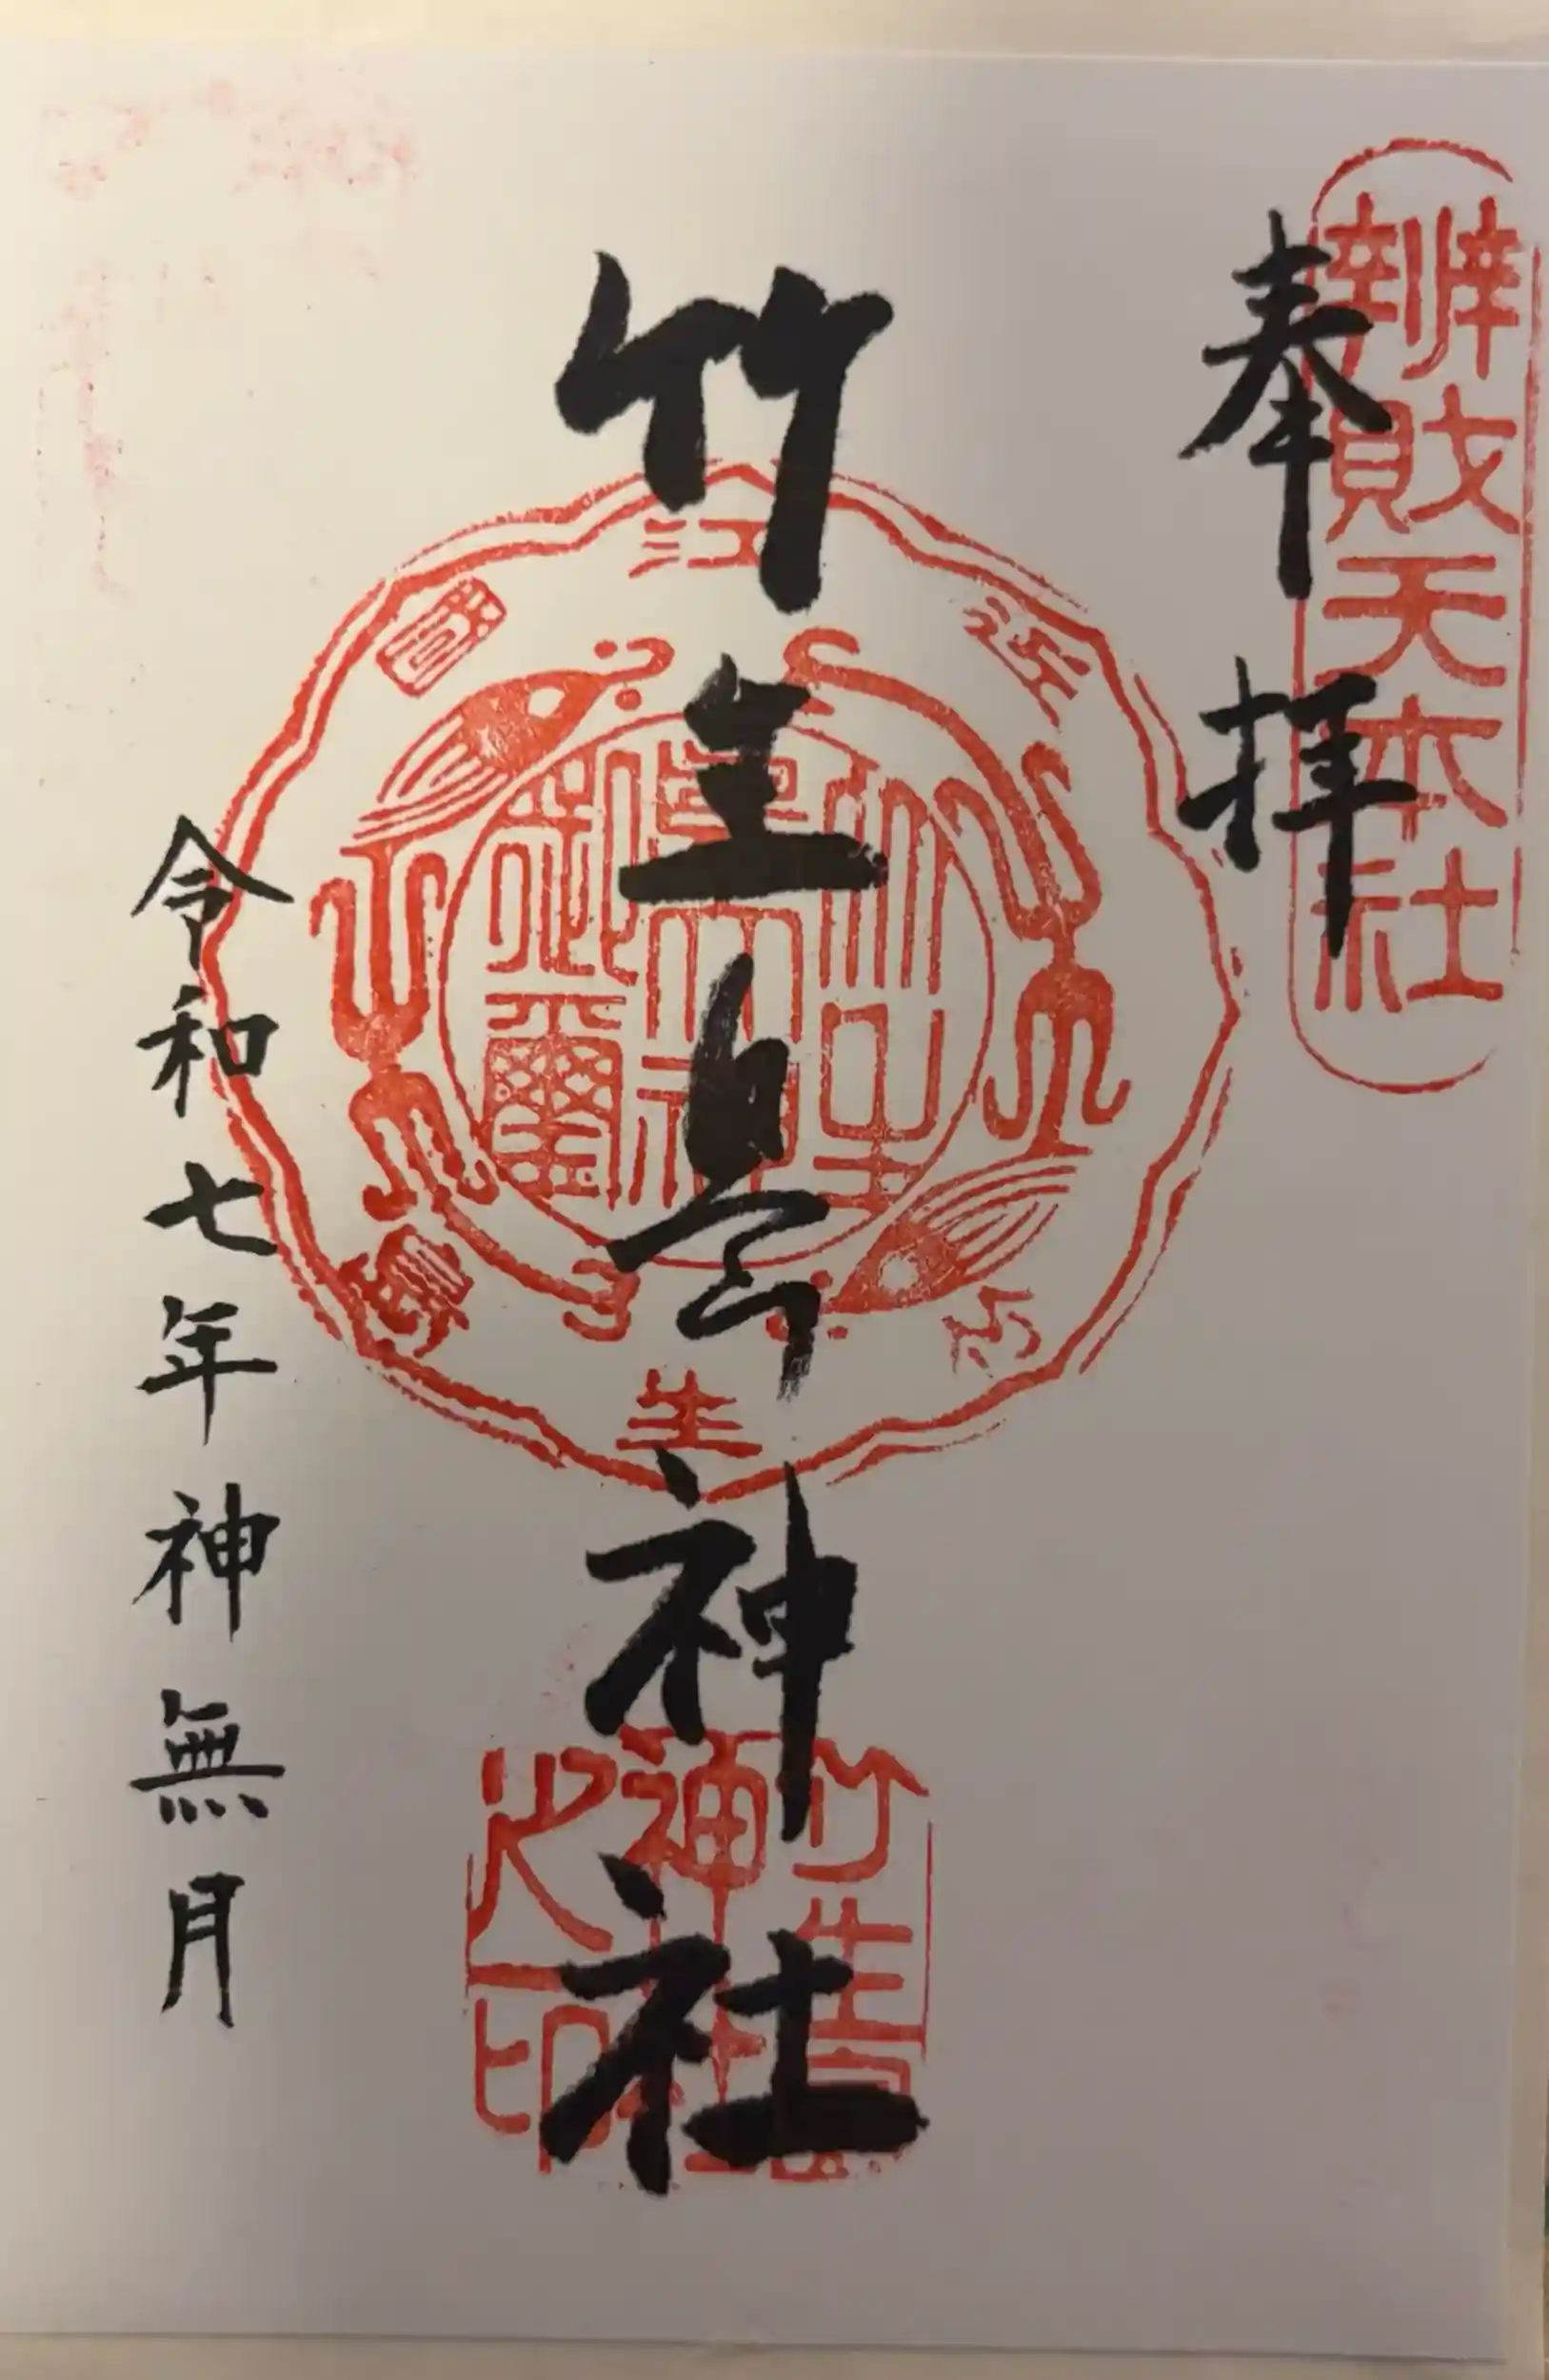 奉拝
辨財天本社
竹生島神社
竹生島神社之印
令和七年神無月